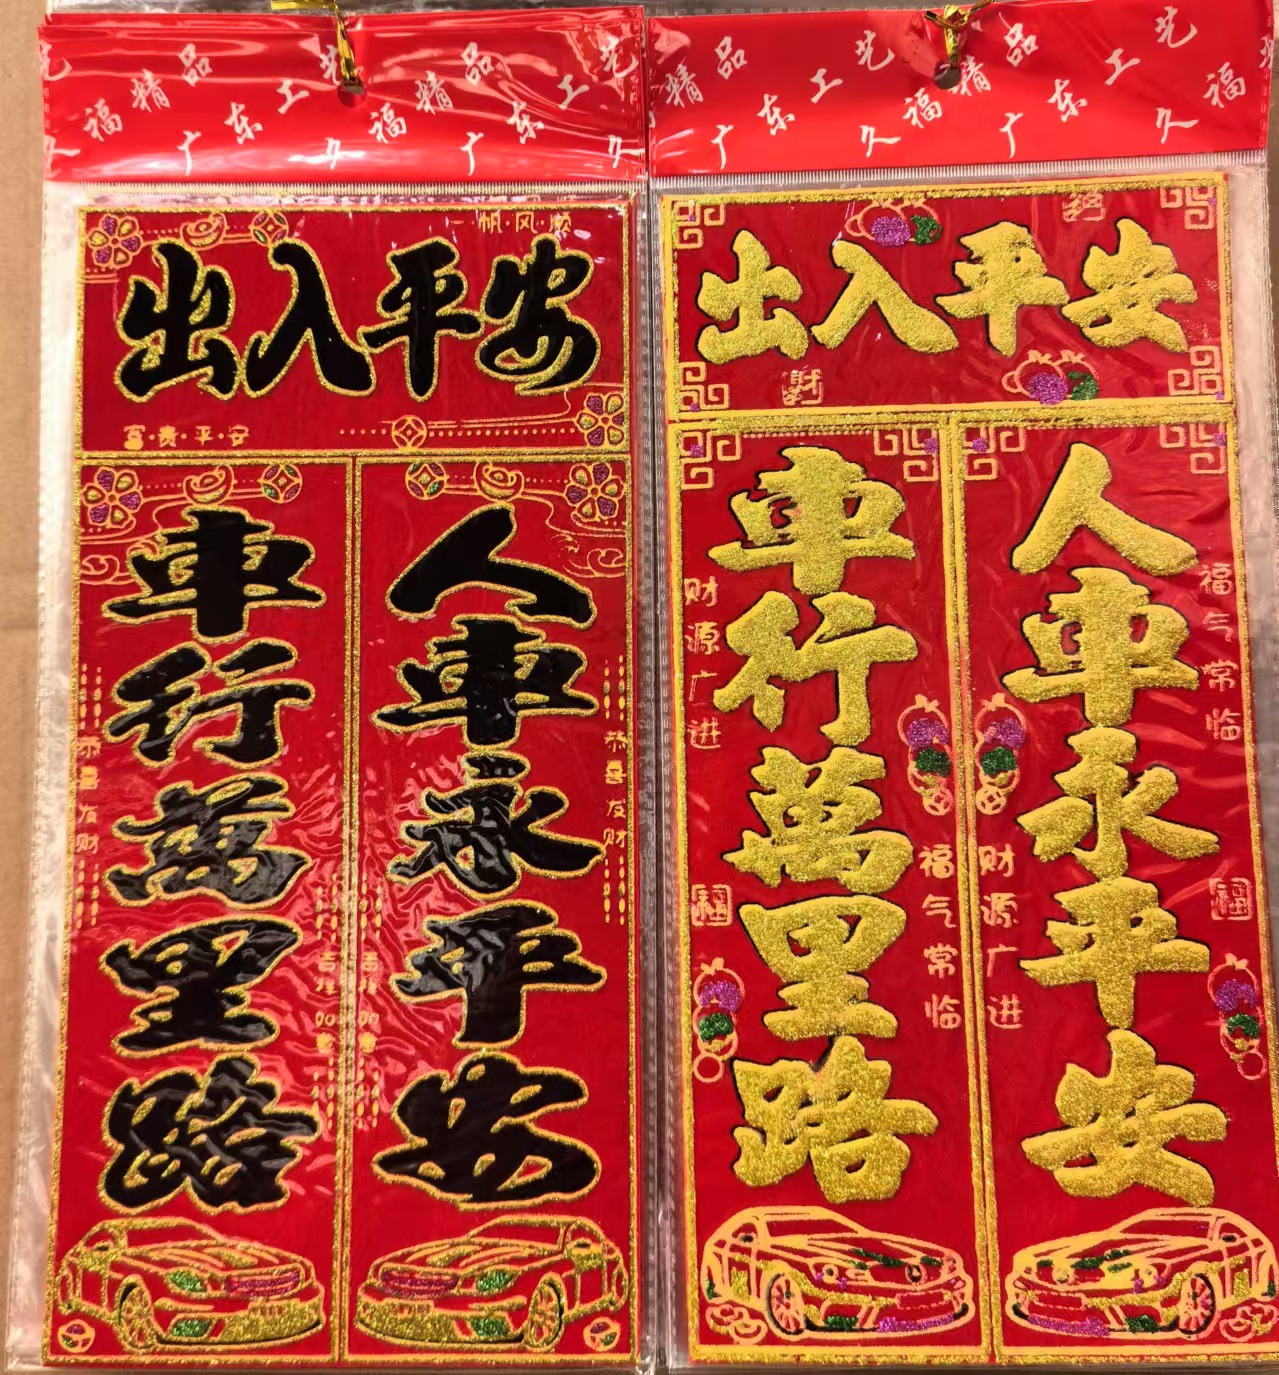 久福精品 广东工艺 久福精品 广东工艺
精品 广东工艺 久福精品 广东工艺 久福
一·帆·风·顺
出入平安
富·贵·平·安
人車永平安
恭喜友财
車行萬里路
恭喜友财
出入平安
财
人車永平安
福气常临
财源广进
福
車行萬里路
财源广进
福气常临
福